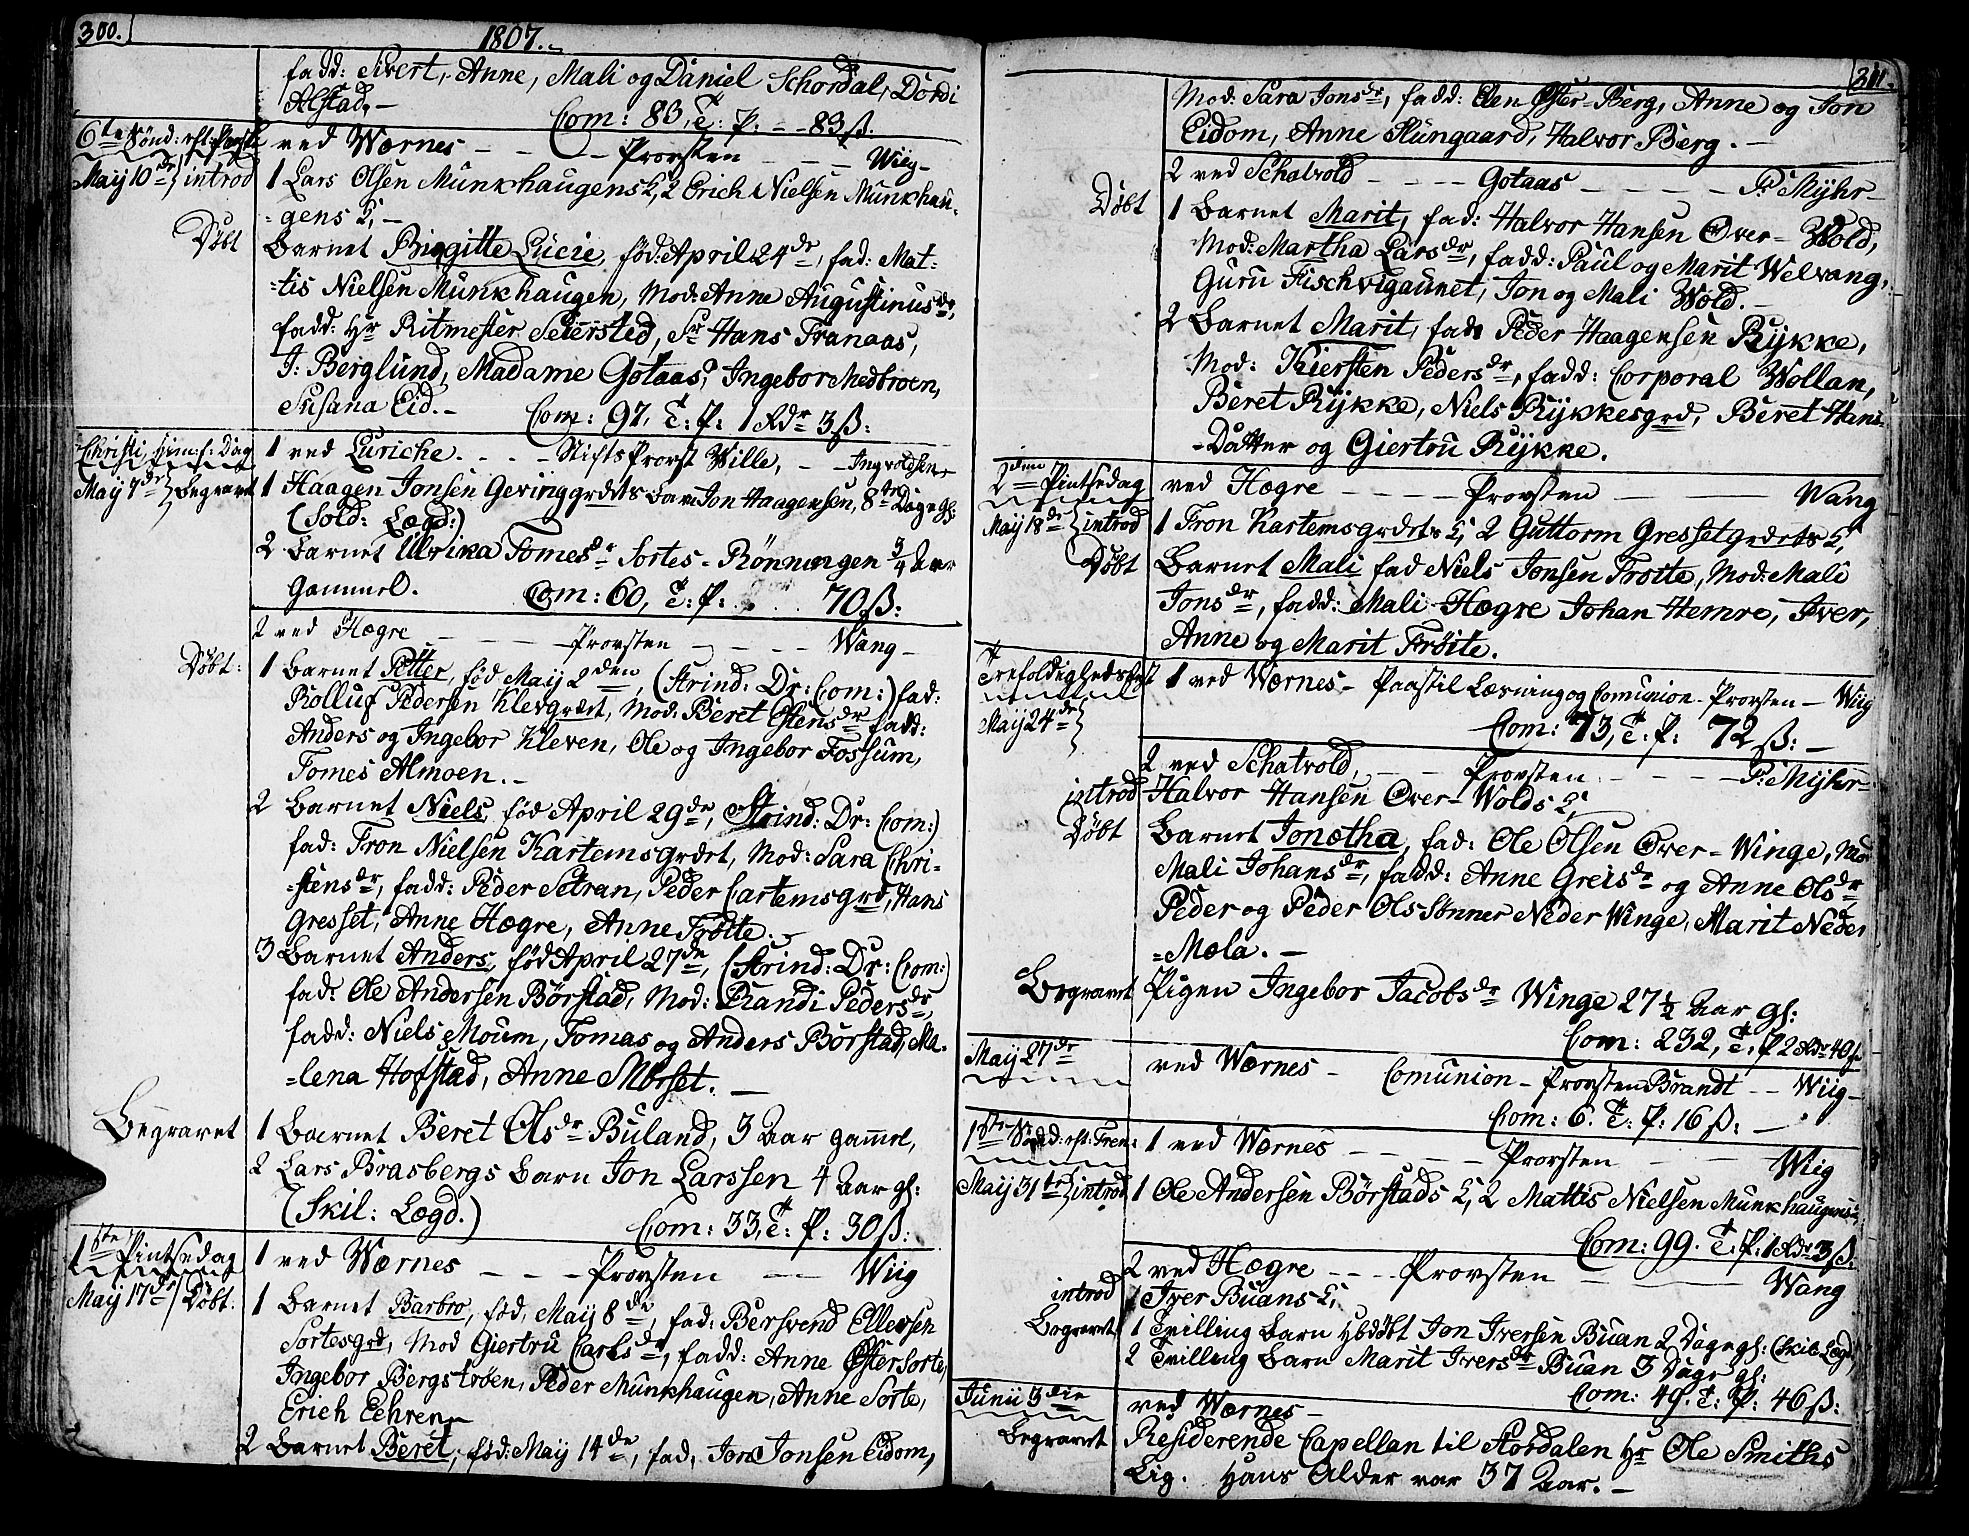 300.
1807.
fadd: Sivert, Anne, Mali og Daniel Schordal, Dordi
Alstad. -
Com: 83, T: P. - - 83 ß.
6te Sönd: eft: Paaske
ved Wærnes - - - Provsten - - - Wiig -
May 10de introd
1 Lars Olsen Munkhaugens K, 2 Erich Nielsen Munkhau-
=gens K, -
Döbt
Barnet Birgitte Lucie, föd: April 24de, fad: Mat-
=tis Nielsen Munkhaugen, Mod: Anne Augustinusdr,
fadd: Hr Ritmester Seiersted, Sr Hans Tranaas,
J: Berglund, Madame Gotaas, Ingebor Medbroen,
Susana Eid. -
Com: 97, T: P: 1 Rdr 3 ß:
Christi Himelf: Dag
1 ved Luriche. - - - Stifts Provst Wille, - - Ingvoldsen -
May 7de Begravet
1 Haagen Jonsen Gevinggrdets Barn Jon Haagensen, 8te Dage gl:
(Sold: Lægd:)
2 Barnet Ulrika Tomesdr Sortes-Rönningen 3/4 Aar
gammel.
Com: 60, T: P: 70 ß:
2 ved Hægre - - - Provsten - - - - Wang -
Döbt:
1 Barnet Petter, föd May 2den, (Strind: Dr: Com:) fad:
Rolluf Pedersen Klevgrdet, Mod: Beret Estensdr fadd:
Anders og Ingebor Kleven, Ole og Ingebor Fossum,
Tomes Almoen. -
2 Barnet Niels, föd April 29de, (Strind: Dr: Com:)
fad: Tron Nielsen Kartemsgrdet, Mod: Sara Chri-
=stensdr, fadd: Peder Setran, Peder Cartemsgrd, Hans
Gresset, Anne Hægre, Anne Tröite. -
3 Barnet Anders, föd April 27de, (Strind: Dr: Com:)
fad: Ole Andersen Börstad, Mod: Randi Pedersdr,
fadd: Niels Moum, Tomas og Anders Börstad, Ma-
=lena Hofstad, Anne Morset. -
Begravet
1 Barnet Beret Olsdr Buland, 3 Aar gammel,
2 Lars Brasbergs Barn Jon Larssen 4 Aar gl:
(Skil: Lægd.)
Com: 33, T: P: 30 ß:
1ste Pintsedag
1 ved Wærnes - - - Provsten - - Wiig
May 17de Döbt:
1 Barnet Barbro, föd, May 8de, fad: Bersvend Ellevsen
Sortesgrd, Mod Giertru Carlsdr, fadd: Anne Öster Sorte,
Ingebor Bergströen, Peder Munkhaugen, Anne Sorte,
Erich Eehren -
2 Barnet Beret, föd: May 14de, fad, Jon Jonsen Eidom,
301.
Mod: Sara Jonsdr, fadd: Elen Öster-Berg, Anne og Jon
Eidom, Anne Slungaard, Halvor Berg. -
2 ved Schatvold - - - - Gotaas - - - - - P: Myhr -
Döbt
1 Barnet Marit, fad: Halvor Hansen Over-Wold,
Mod: Martha Larsdr, fadd: Paul og Marit Welvang,
Guru Fischvigaunet, Jon og Mali Wold. -
2 Barnet Marit, fad: Peder Haagensen Rykke,
Mod: Kiersten Pedersdr, fadd: Corporal Wollan,
Beret Rykke, Niels Rykkesgrd, Beret Hans-
-Datter og Giertru Rykke.
2den Pintsedag
ved Hægre - - - - Provsten - - - Wang
May 18de introd
1 Tron Kartemsgrdets K, 2 Guttorm Gressetgrdets K,
Döbt
Barnet Mali fad Niels Jonsen Troite, Mod: Mali
Jonsdr, fadd: Mali Hægre Johan Hemre, Iver,
Anne og Marit Tröite.
Trefoldighedsfest
1 ved Wærnes - Postil Læsning og Comunion - Provsten - Wiig
May 24de
Com: 73, T: P: 72 ß: -
2 ved Schatvold, - - - Provsten - - - - P: Myhr -
introd
Halvor Hansen Over-Wolds K,
Döbt
Barnet Jonetha, fad: Ole Olsen Over-Winge, Mo
Mali Johansdr, fadd: Anne Greisdr og Anne Olsdr
Peder og Peder Ols Sönner Neder Winge, Marit Neder
=Mæla. -
Begravet
Pigen Ingebor Jacobsdr Winge 27 1/2 Aar gl:
Com: 232, T: P 2 Rdr 40 ß
May 27de
ved Wærnes - Comunion - Provsten Brandt - - Wiig -
Com: 6. T: P: 16 ß: -
1ste Sönd: eft: Tref:
1 ved Wærnes - - - - Provsten - - Wiig
May 31te introd
1 Ole Andersen Börstads K, 2 Mattis Nielsen Munkhaugens K,
Com: 99. T: P: 1 Rdr 3 ß:
2 ved Hægre - - - Provsten - - - Wang
introd
1 Iver Buans K,
Begravet
1 Tvilling Barn hbdöbt Jon Iversen Buan 2 Dage gl: (Skil: Lægd)
2 Tvilling Barn Marit Iversdr Buan 3 Dage gl:
Com: 49. T: P: 46 ß:
Junii 3die
ved Wærnes -
Begravet
Residerende Capellan til Stordalen Hr Ole Smiths
Lig. Hans Alder var 37 Aar. -